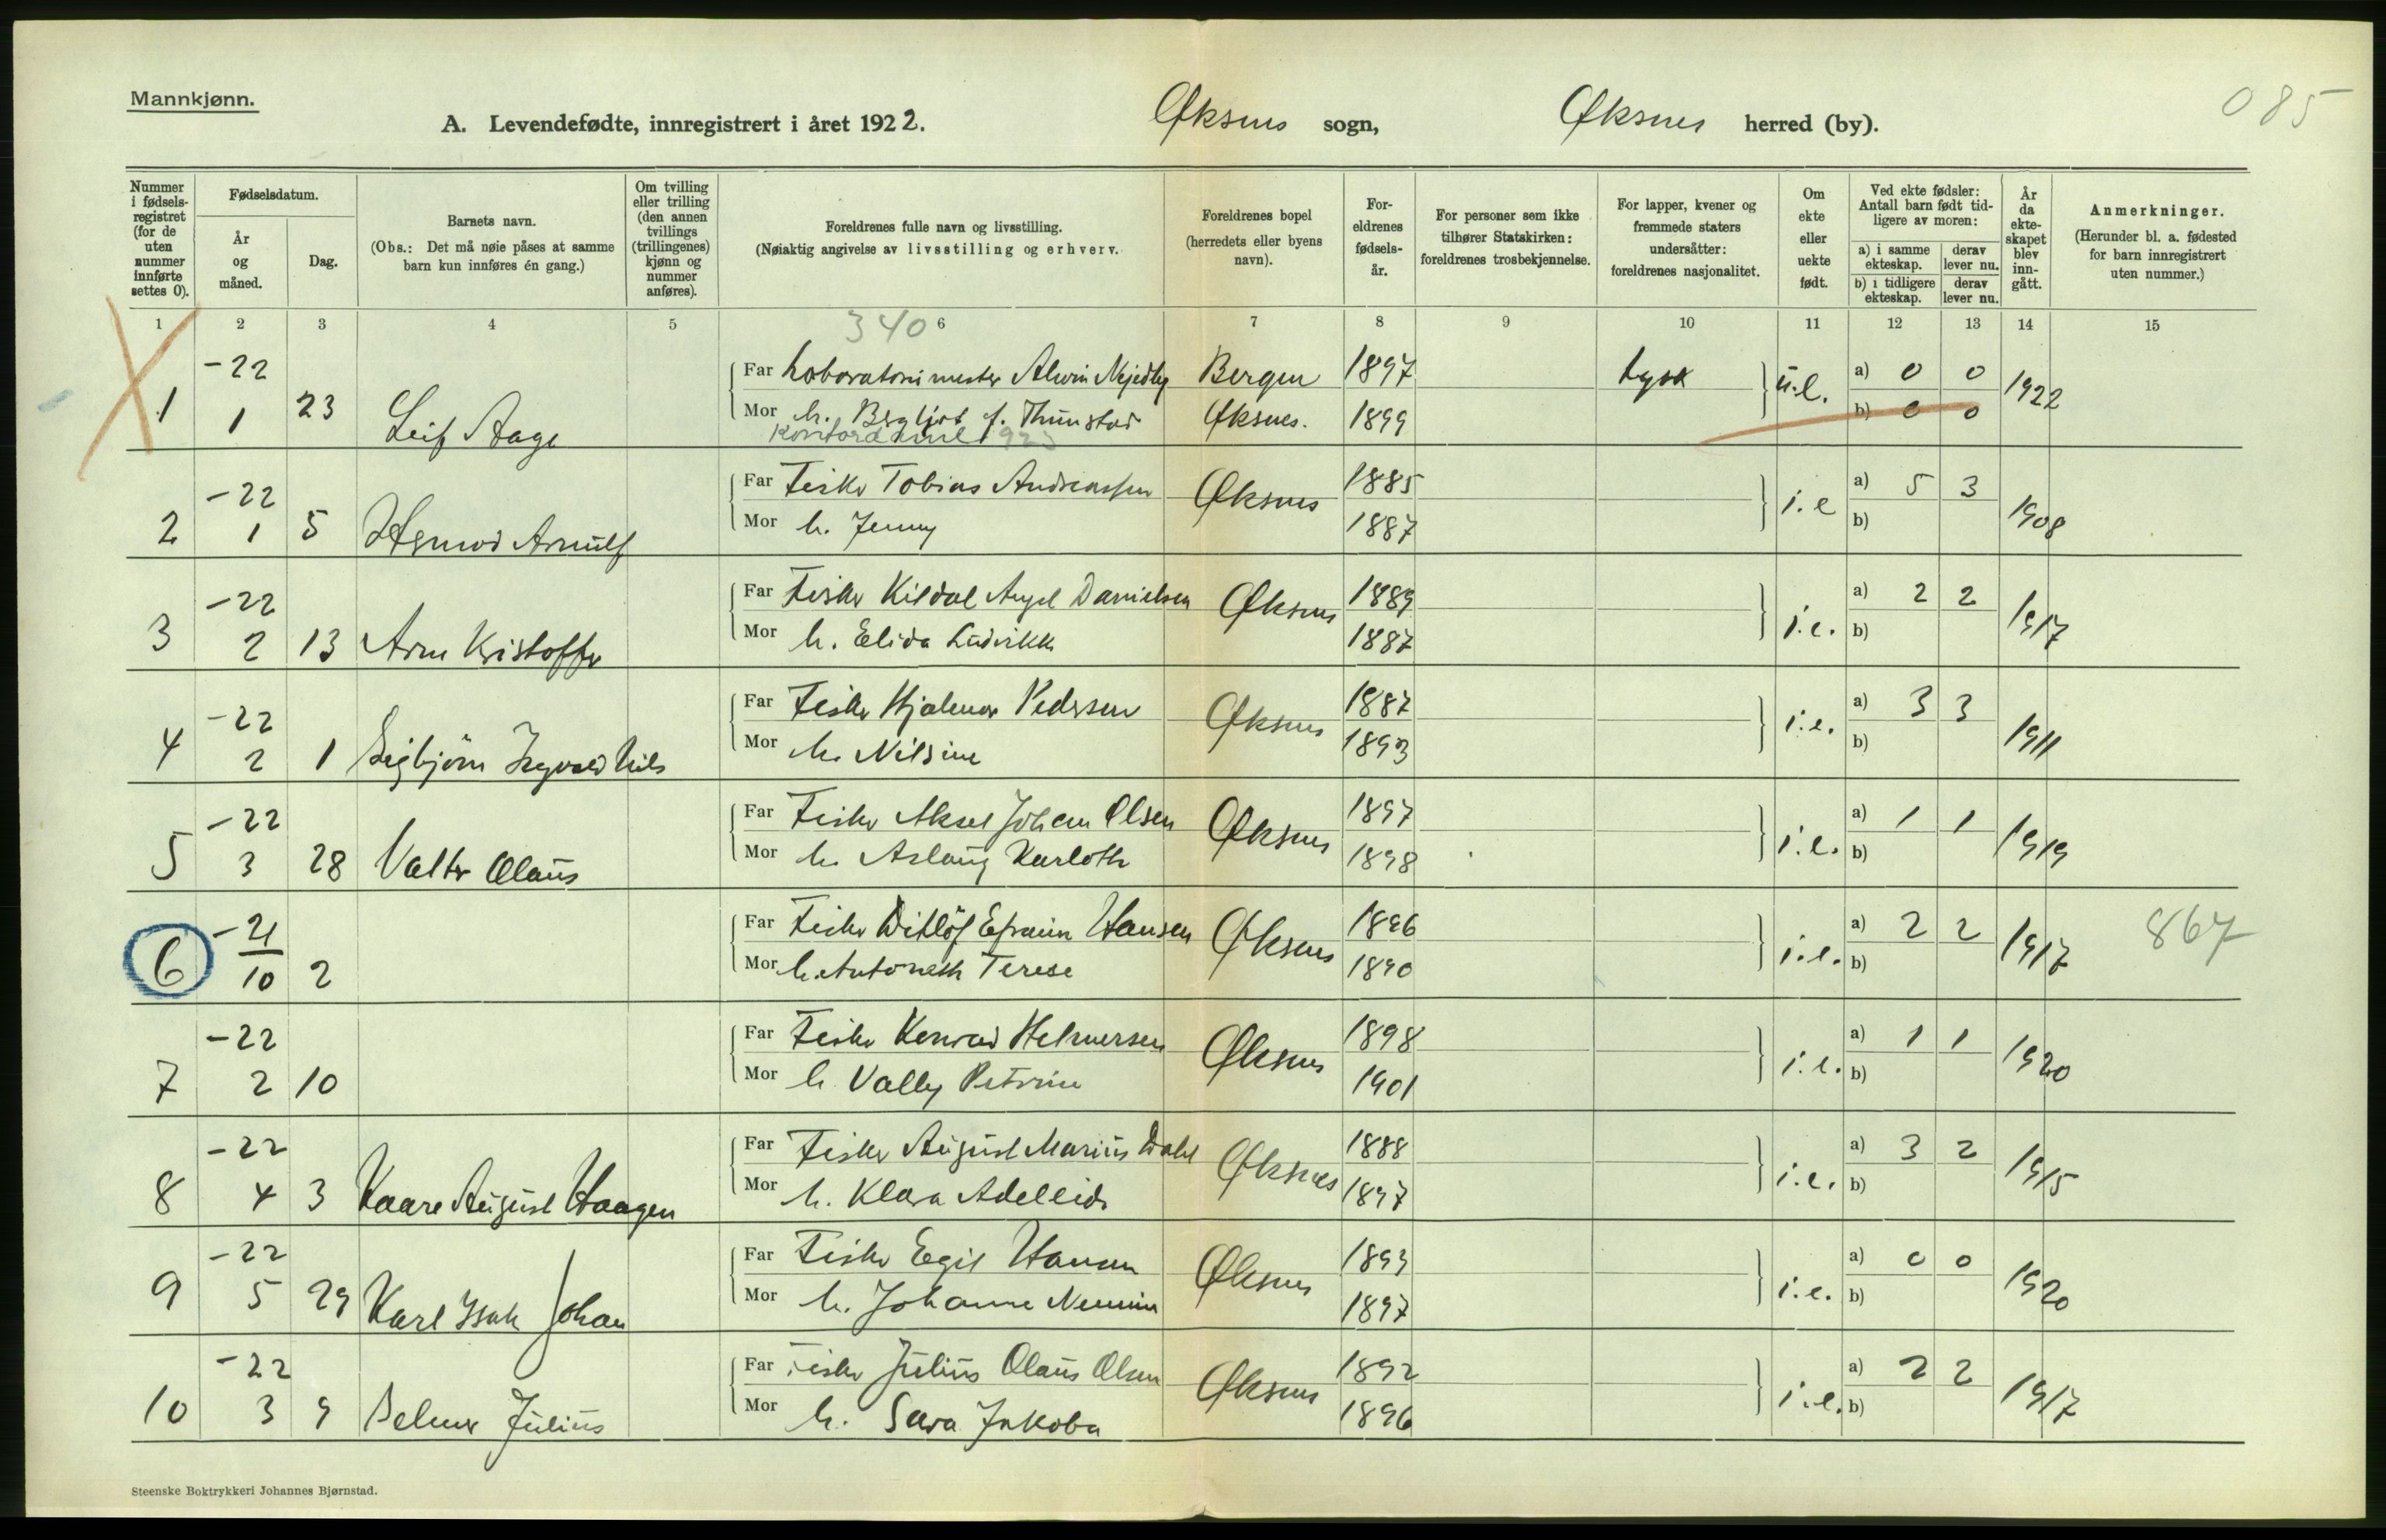 Mannkjønn.
085
A. Levendefødte, innregistrert i året 1922. Øksnes sogn, Øksnes herred (by).
Nummer i fødsels-registret (for de uten nummer innførte settes 0).
Fødselsdatum.
År og måned.
Dag.
Barnets navn.
(Obs.: Det må nøie påses at samme barn kun innføres én gang.)
Om tvilling eller trilling (den annen tvillings (trillingenes) kjønn og nummer anføres).
Foreldrenes fulle navn og livsstilling.
(Nøiaktig angivelse av livsstilling og erhverv.
Foreldrenes bopel (herredets eller byens navn).
For-eldrenes fødsels-år.
For personer som ikke tilhører Statskirken: foreldrenes trosbekjennelse.
For lapper, kvener og fremmede staters undersåtter: foreldrenes nasjonalitet.
Om ekte eller uekte født.
Ved ekte fødsler: Antall barn født tid-ligere av moren:
a) i samme ekteskap. derav lever nu.
b) i tidligere ekteskap. derav lever nu.
År da ekte-skapet blev inn-gått.
Anmerkninger.
(Herunder bl. a. fødested for barn innregistrert uten nummer.)
1 2 3 4 5 6 7 8 9 10 11 12 13 14 15
340
1 -22 1 23 Leif Aage
Far Laboratorimester Alwin Nejedly Bergen 1897 tysk u.e. a) 0 0 1922
Mor h. Bergljot f. Thunstad Øksnes. 1899 b) 0 0
Kontordame
2 -22 1 5 Arnulf
Far Fisker Tobias Andreassen Øksnes 1885 i.e a) 5 3 1908
Mor h. Jenny 1887 b)
3 -22 2 13 Arne Kristoffer
Far Fisker Kildal Angel Danielsen Øksnes 1889 i.e. a) 2 2 1917
Mor h. Elida Ludvikke 1887 b)
4 -22 2 1 Sigbjörn Ingvald Nils
Far Fisker Hjalmar Pedersen Øksnes 1887 i.e. a) 3 3 1911
Mor h. Nilsine 1893 b)
5 -22 3 28 Valter Olaus
Far Fisker Aksel Johan Olsen Øksnes 1897 i.e. a) 1 1 1919
Mor h. Aslaug Karlothe 1898 b)
6 -21 10 2
Far Fisker Ditlöf Efraim Hansen Øksnes 1896 i.e. a) 2 2 1917 867
Mor h. Antoneth Terese 1890 b)
7 -22 2 10
Far Fisker Konrad Helmersen Øksnes 1898 i.e. a) 1 1 1920
Mor h. Vally Petrine 1901 b)
8 -22 4 3 Kaare August Haagen
Far Fisker August Marius Dahl Øksnes 1888 i.e. a) 3 2 1915
Mor h. Klara Adelleide 1897 b)
9 -22 5 29 Karl Isak Johan
Far Fisker Egil Hansen Øksnes 1893 i.e. a) 0 0 1920
Mor h. Johanne 1897 b)
10 -22 3 9 Selmer Julius
Far Fisker Julius Olaus Olsen Øksnes 1892 i.e. a) 2 2 1917
Mor h. Sara Jakoba 1896 b)
Steenske Boktrykkeri Johannes Bjørnstad.